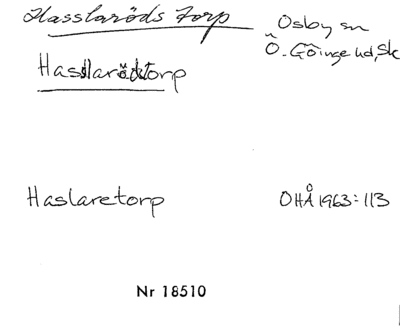 Hasslaröds Torp
Osby sn
Ö. Göinge hd, Sk
Haslarödstorp
Haslaretorp
OHÅ 1963:113
Nr 18510